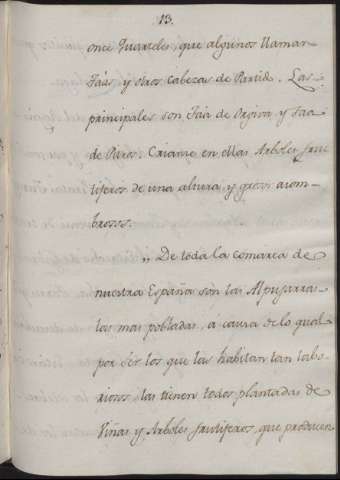 13.
once Quarteles, que algunos llaman
Taàs y otros Cabezas de Partido. Las
principales son Taà de Orgiva y Taa
de Pitros. Crianse en ellas Arboles fruc
tiferos de una altura, y grueso asom-
brosos.
,, De toda la comarca de
nuestra España son las Alpujarras
las mas pobladas, á causa de lo qual
por ser los que las habitan tan labo-
riosos, las tienen todas plantadas de
Viñas y Arboles fructiferos, que producen